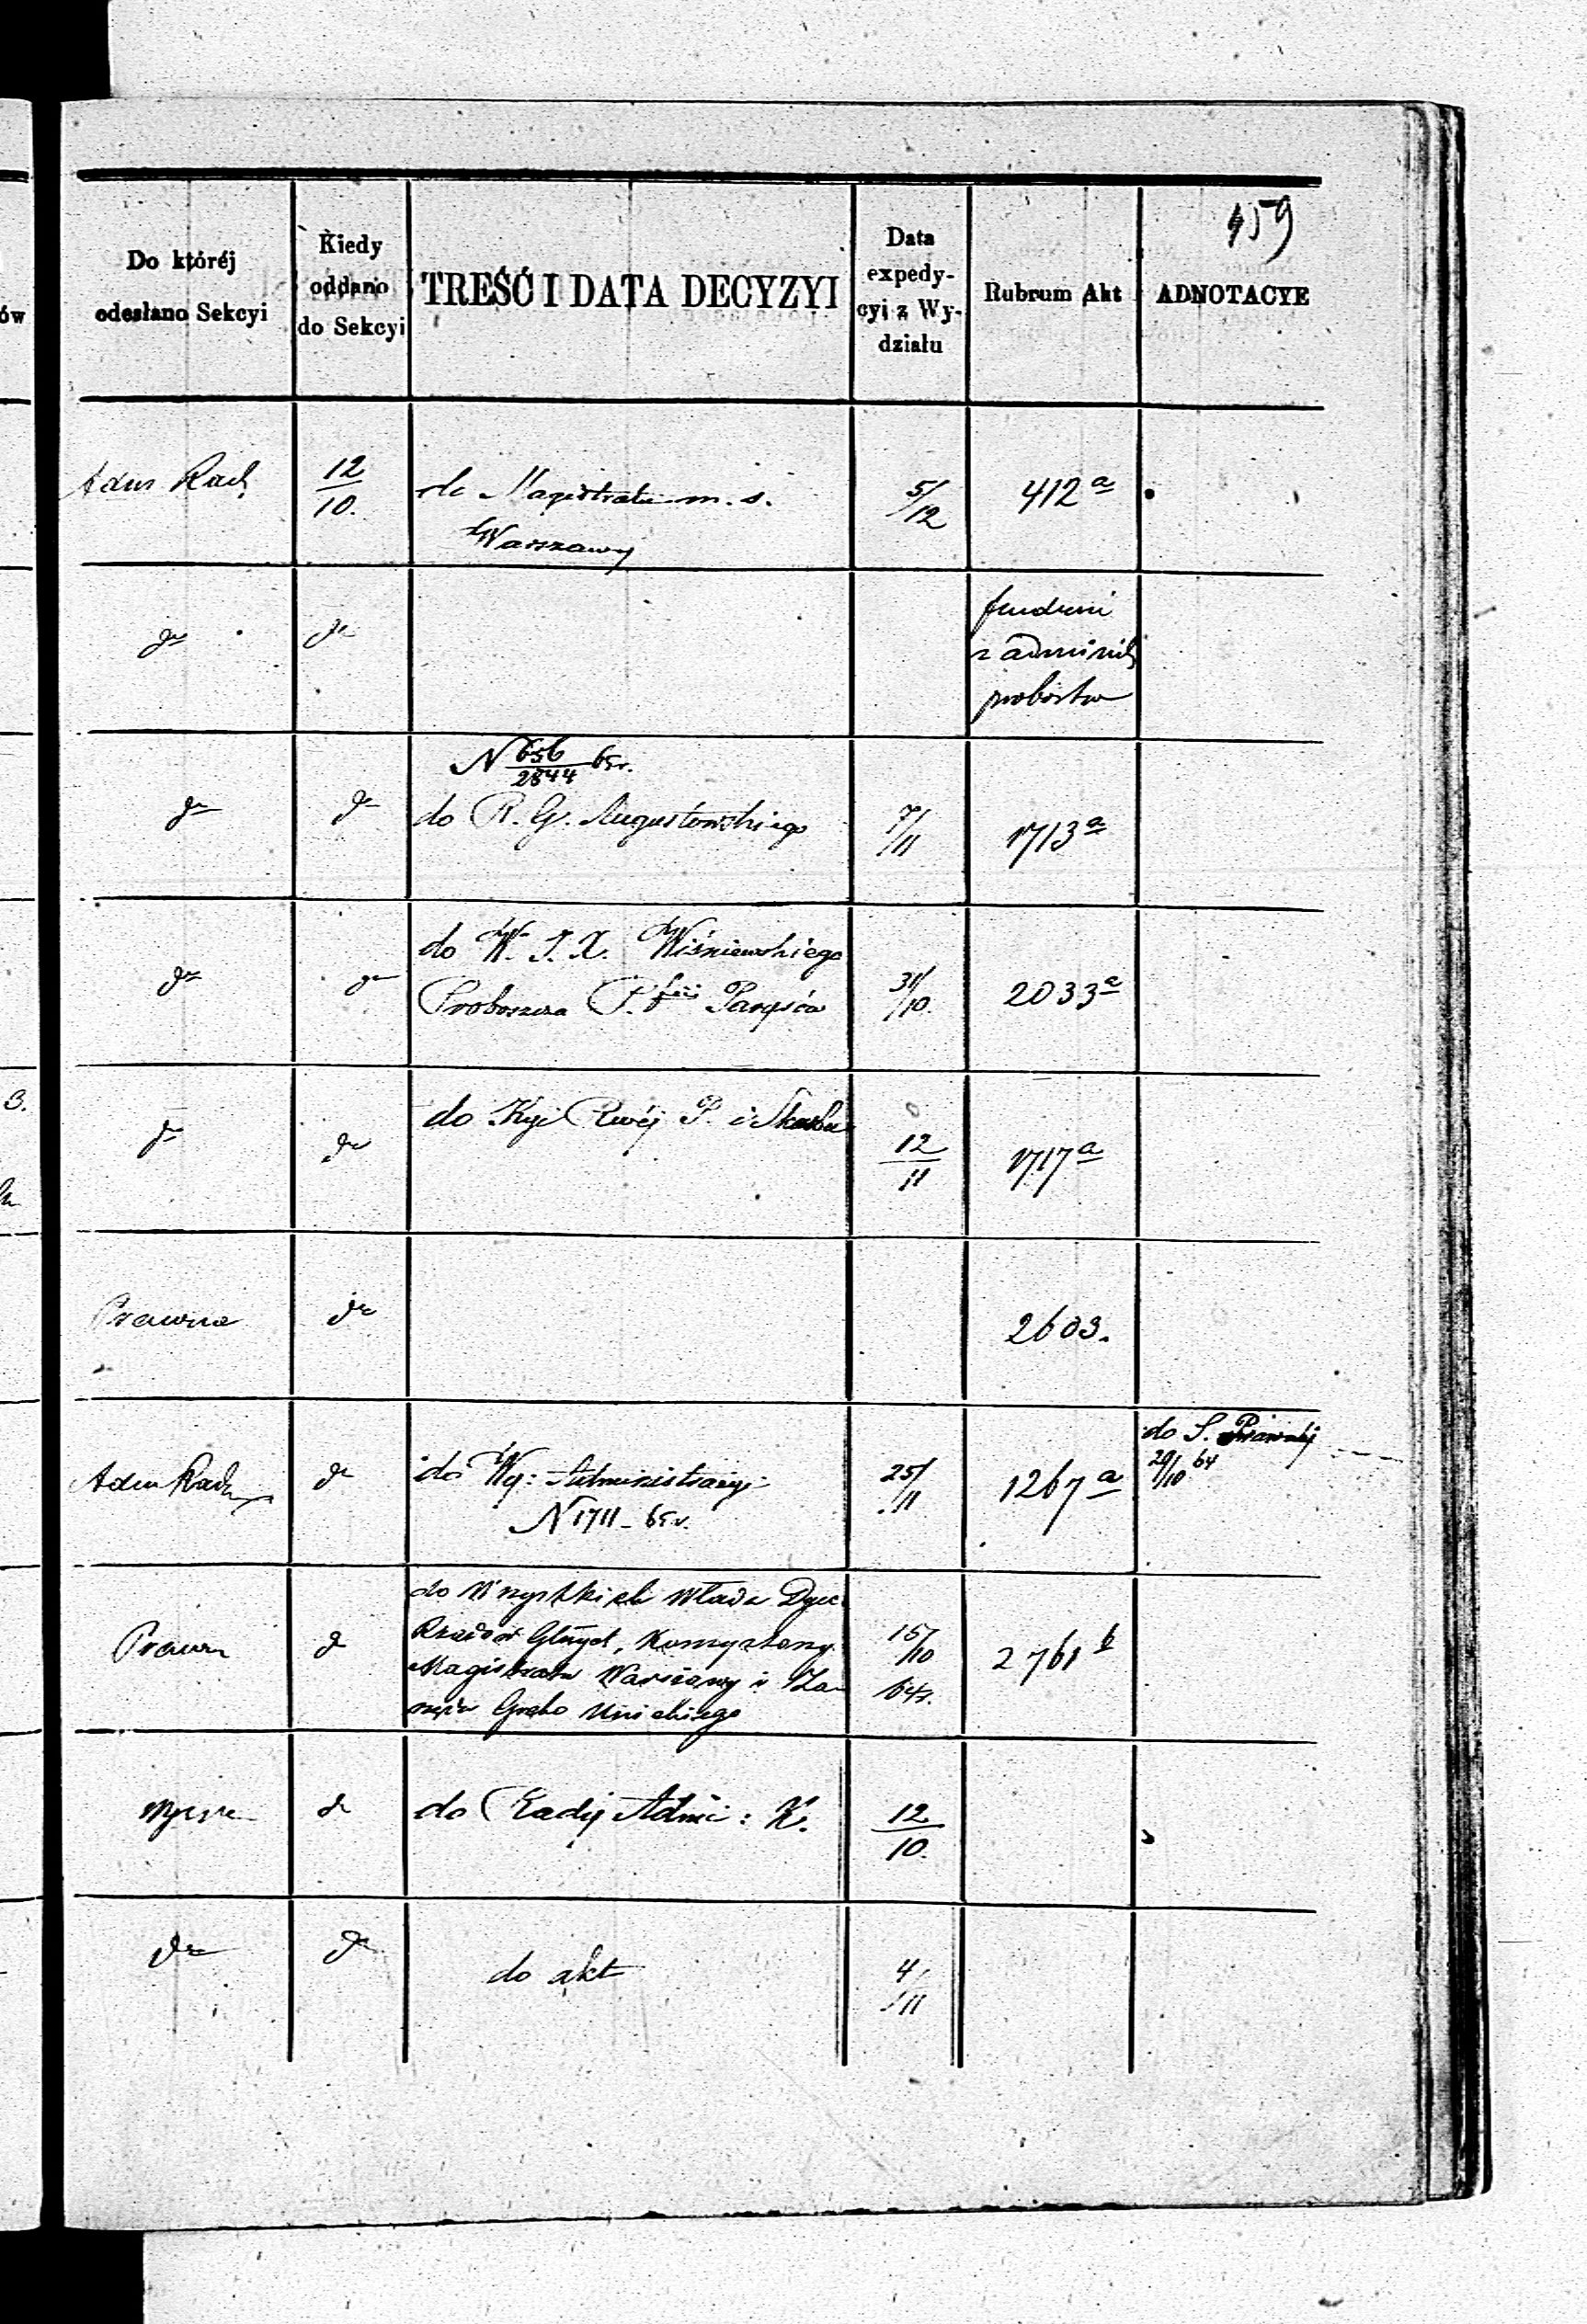 159
Do któréj
odesłano Sekcyi
Kiedy
oddano
do Sekcyi
TREŚĆ I DATA DECYZYI
Data
expedy-
cyi z Wy-
działu
Rubrum Akt
ADNOTACYE
ów
Adm Rach
12/10.
do Magistratu m. s.
Warszawy
5/12
412 a
do
do
fundusi
z
probostw
N 656/2844 65 r.
do
do
do R. G. Augustowskiego
7/11
1713 a
do
do
do W. J. X. Wiśniewskiego
Proboszcza P.fii Parysów
31/10.
2033 a
3.
do
do
do Kyi Rwéj P. i Skarbu
12/11
1717 a
Prawna
do
2603.
Adm Rach
do
do Wy: Administracyi
N 1711 - 65 r.
25/11
1267 a
do S. Prawnéj
29/10 64
Prawn
do
do Wszystkich Władz Dyec.
Rządów Głnych,
Magistratu Warszawy i Za-
Greko Unickiego
15/10
64 r.
2761 b
do
do Rady Admi: K.
12/10.
do
do
do akt
4/11